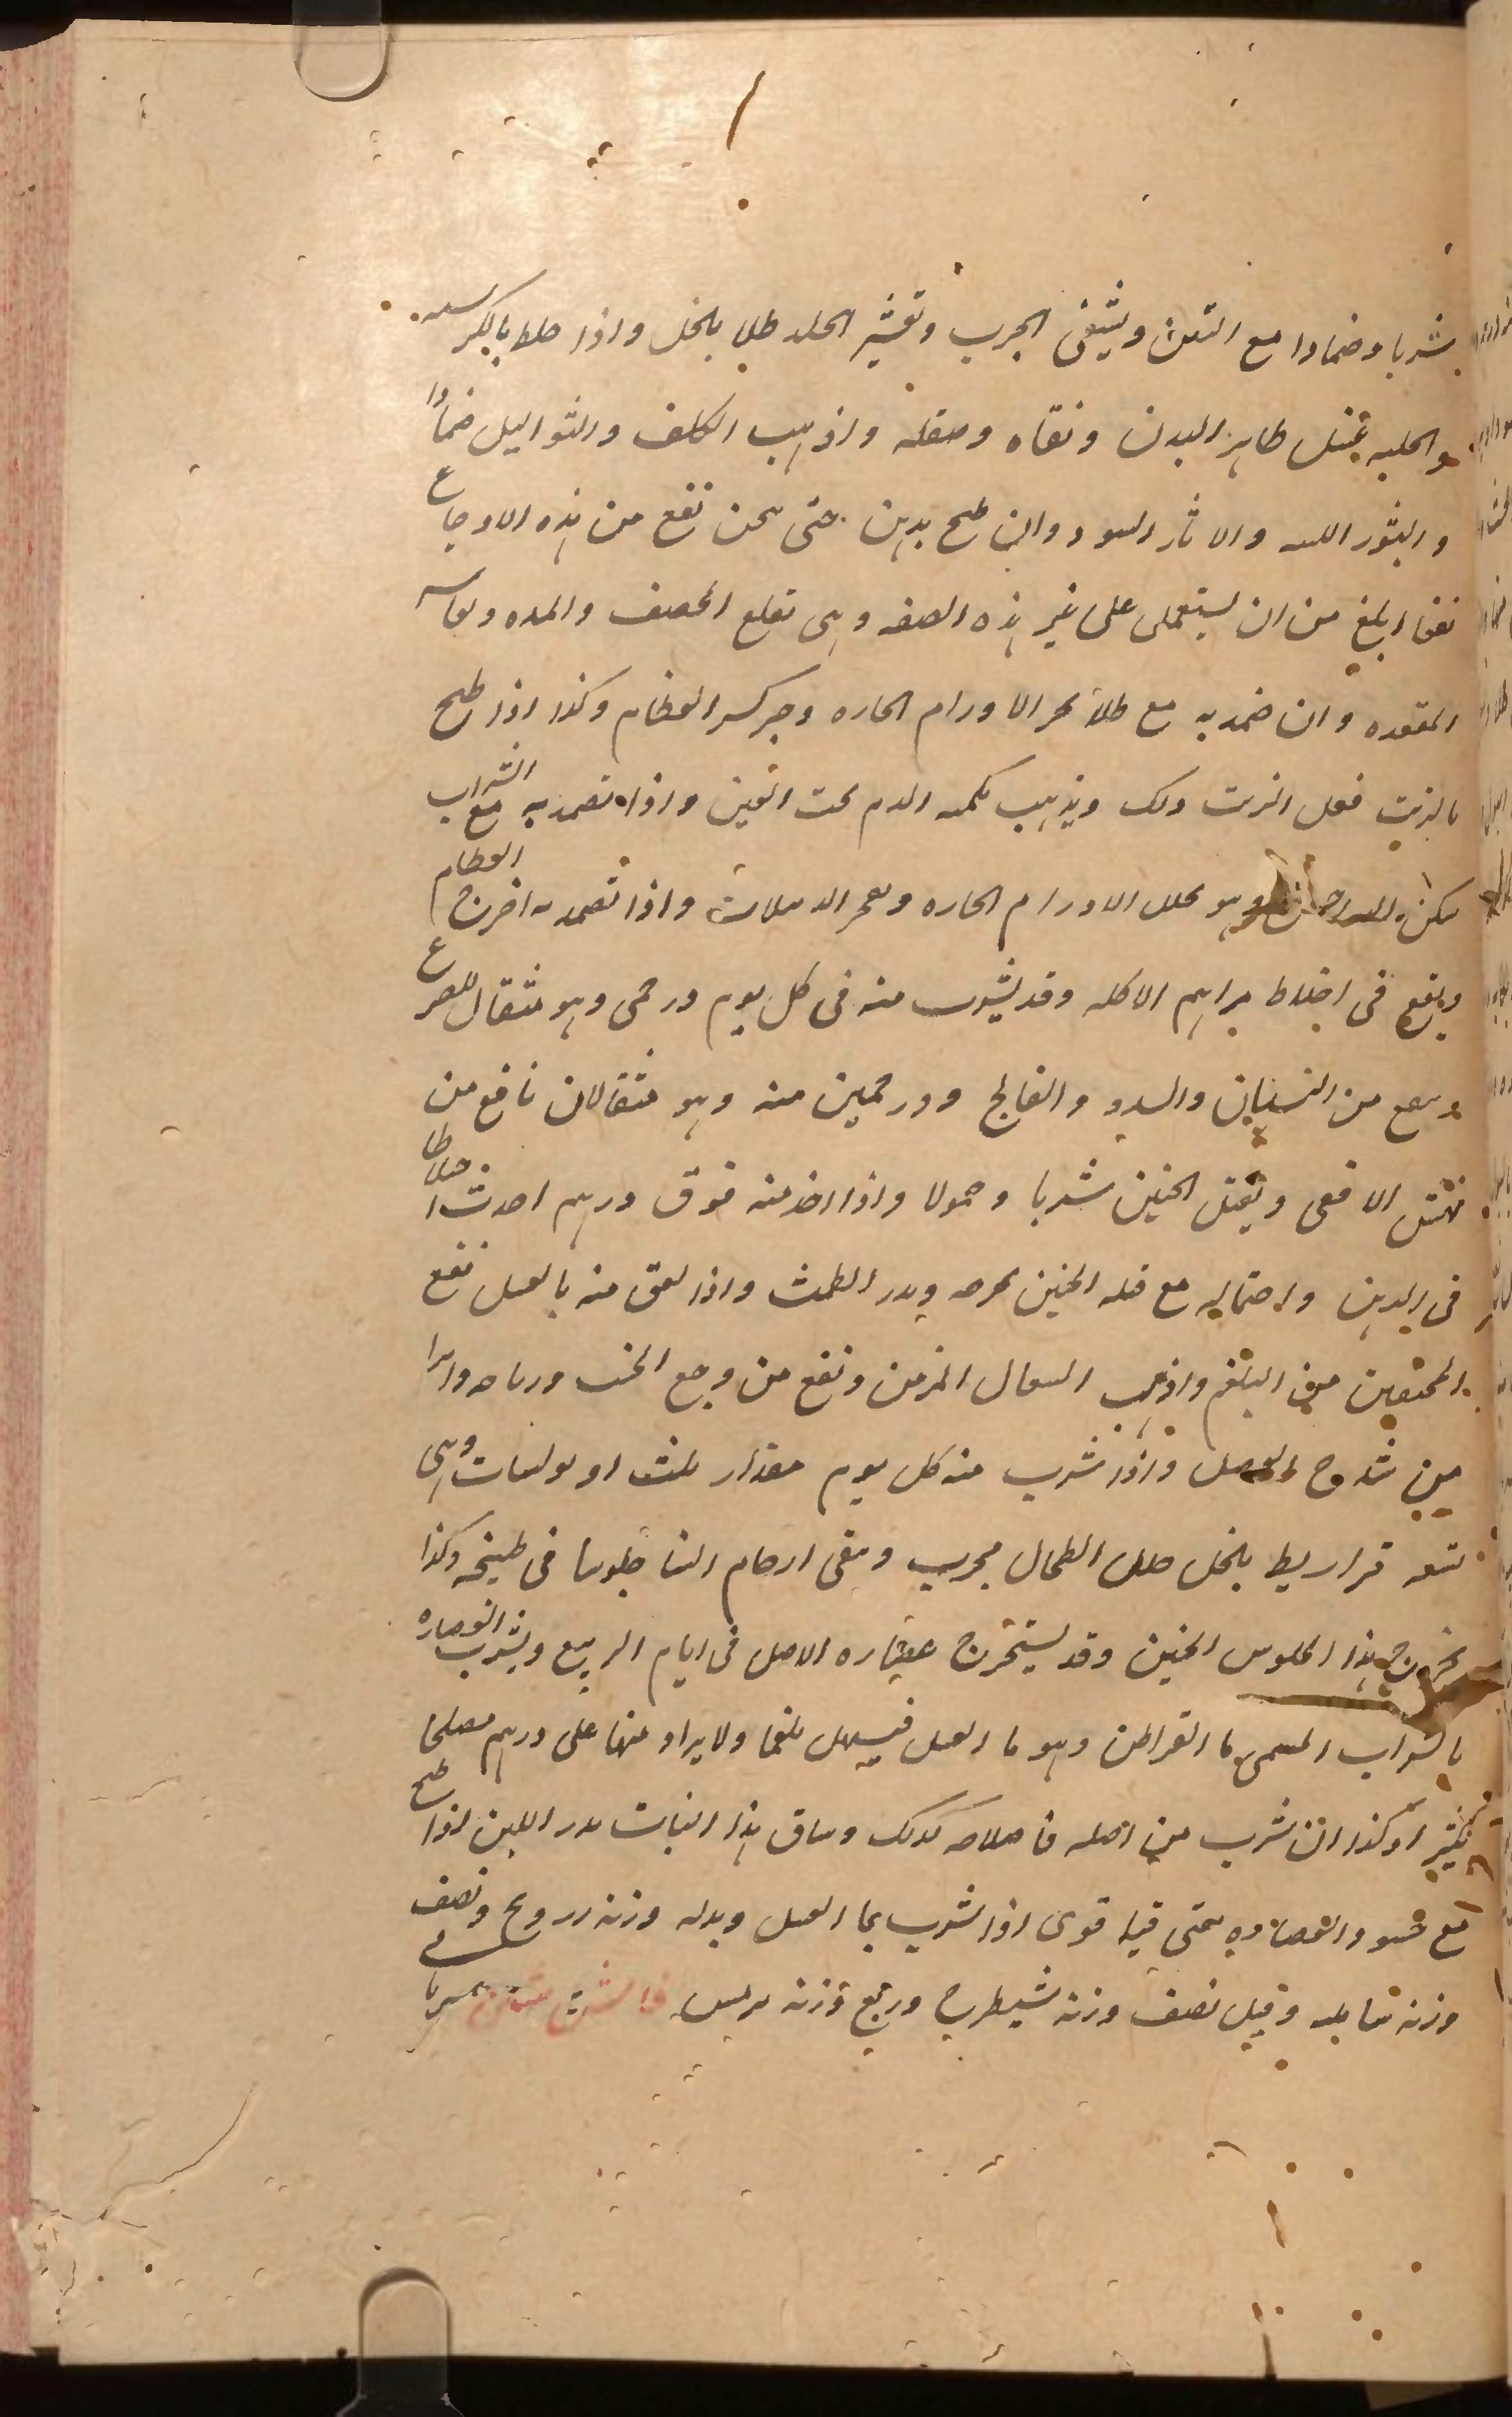 شربا وضمادا مع التين وينقى الجرب وتقشير الجلد طلا بالخل واذا خلط بالكرسنه
والحلبه غسل ظاهر البدن ونقاه وصقله واذهب الكلف والثواليل ضمادا
والبثور اللبنيه والاثار السود وان طبخ بدهن حتى سخن نفع من هذه الاوجاع
نفعا ابلغ من ان يستعمل على غير هذه الصفه وهى تقلع الحصف والمده
المقعده وان ضمد به مع طلا الاورام الحاره وجبر كسر العظام وكذا اذا طبخ
بالزيت فعل الزيت ذلك ويذهب كمنه الدم تحت العين واذا تضمد به مع الشراب
سكن الداحس وهو يحلل الاورام الحاره ويفجر الدبيلات واذا تضمد به اخرج العظام
ويقع فى اخلاط مراهم الاكله وقد يشرب منه فى كل يوم درخمى وهو مثقال للصرع
وينفع من النسيان والسدر والفالج ودرخمين منه وهو مثقالان نافع من
نهش الافعى ويقتل الجنين شربا وحمولا واذا اخذ منه فوق درهم احدث اخلاطا
فى الذهن واحتماله مع قتله الجنين يخرجه ويدر الطمث واذا لعق منه بالعسل نفع
المختنقين من البلغم واذهب السعال المزمن ونفع من وجع الجنب
من شدوخ العضل واذا شرب منه كل يوم مقدار ثلث اوبولسات وهى
تسعه قراريط بالخل حلل الطحال مجرب وينقى ارحام النسا جلوسا فى طبيخه وكذا
يخرج هذا الجلوس الجنين وقد يستخرج عصاره الاصل فى ايام الربيع ويشرب العصاره
بالشراب المسمى ما القراطن وهو ما العسل فيسهل بلغما ولا يزاد منها على درهم مصلحا
بكثيرا وكذا ان شرب من اصله فاصلاحه كذلك وساق هذا النبات يدر اللبن اذا طبخ
مع حسو والعصاره تقى قيا قوى اذا شرب بما العسل وبدله وزنه درونج ونصف
وزنه بسباسه وقيل نصف وزنه شيطرج وربع وزنه